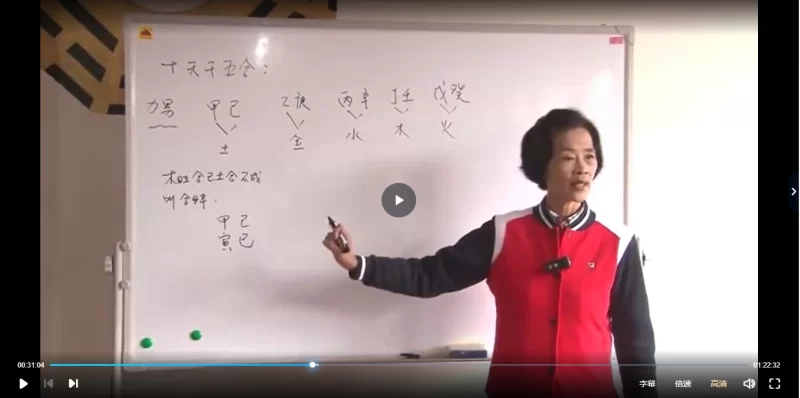 十天干五合：
力男 甲己 乙庚 丙辛 丁壬 戊癸
土 金 水 木 火
木旺合己土合不成
叫合绊.
甲己
寅巳
00:31:04
01:22:32
字幕 倍速 高清